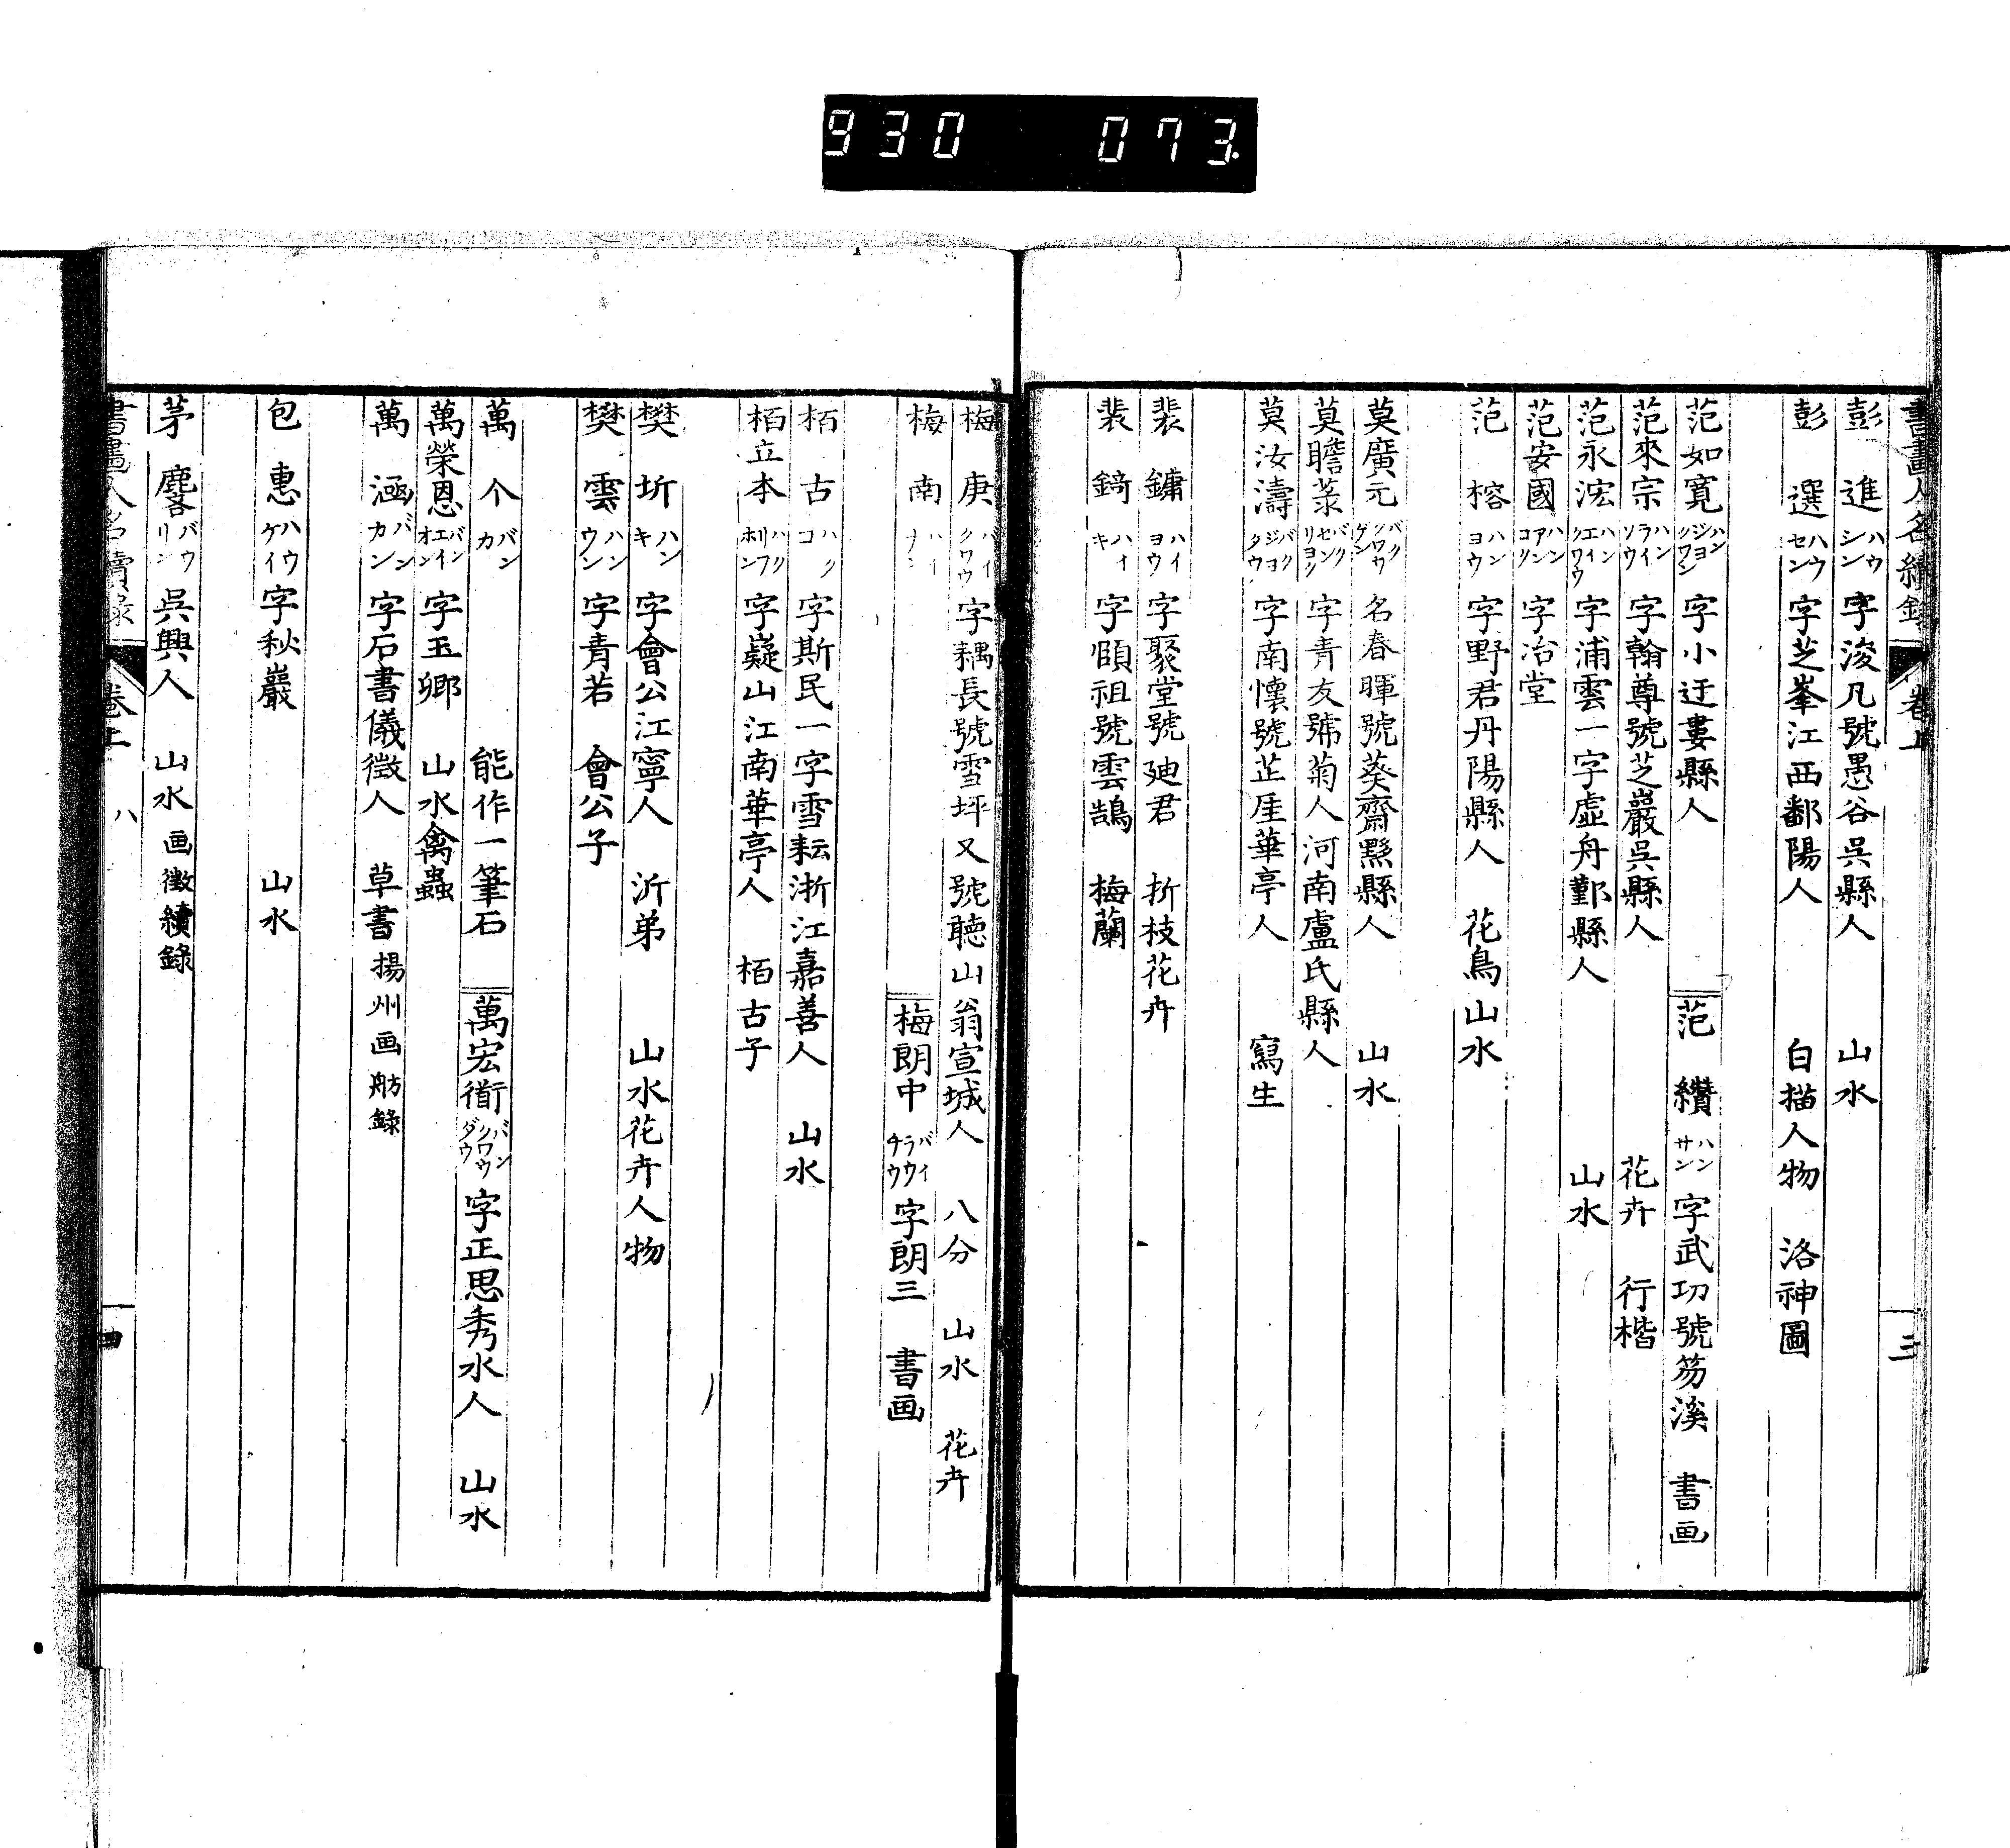 930 073.
書畫人名續錄 卷上 三
彭進 ハウシン 字浚凡號愚谷呉縣人 山水
彭選 ハウセン 字芝峯江西鄱陽人 白描人物 洛神圖
范如寛 ハンジヨクワン 字小迂婁縣人 范纘 ハンサン 字武功號笏溪 書画
范來宗 ハンライソウ 字翰尊號芝巖呉縣人 花卉 行楷
范永浤 ハンエイクワウ 字浦雲一字虚舟鄞縣人 山水
范安國 ハンアンコク 字冶堂
范榕 ハンヨウ 字野君丹陽縣人 花鳥山水
莫廣元 バククワウゲン 名春暉號葵齋黟縣人 山水
莫瞻菉 バクセンリヨク 字青友號菊人河南盧氏縣人
莫汝濤 バクジヨタウ 字南懐號芷厓華亭人 寫生
裴鏞 ハイヨウ 字聚堂號廸君 折枝花卉
裴錡 ハイキ 字頤祖號雲鵠 梅蘭
梅庚 バイクワウ 字耦長號雪坪又號聴山翁宣城人 八分 山水 花卉
梅南 ハイナン 梅朗中 バイラウチウ 字朗三 書画
栢古 ハクコ 字斯民一字雪耘浙江嘉善人 山水
栢立本 ハクリフホン 字嶷山江南華亭人 栢古子
樊圻 ハンキ 字會公江寧人 沂弟 山水花卉人物
樊雲 ハンウン 字青若 會公子
萬个 バンカ 能作一筆石 萬宏衜 バンクワウダウ 字正思秀水人 山水
萬榮恩 バンエイオン 字玉卿 山水禽蟲
萬涵 バンカン 字石書儀徴人 草書 揚州画舫錄
包惠 ハウケイ 字秋巖 山水
茅麐 バウリン 呉興人 山水 画徴續錄
書畫人名續錄 卷上 ハ 四